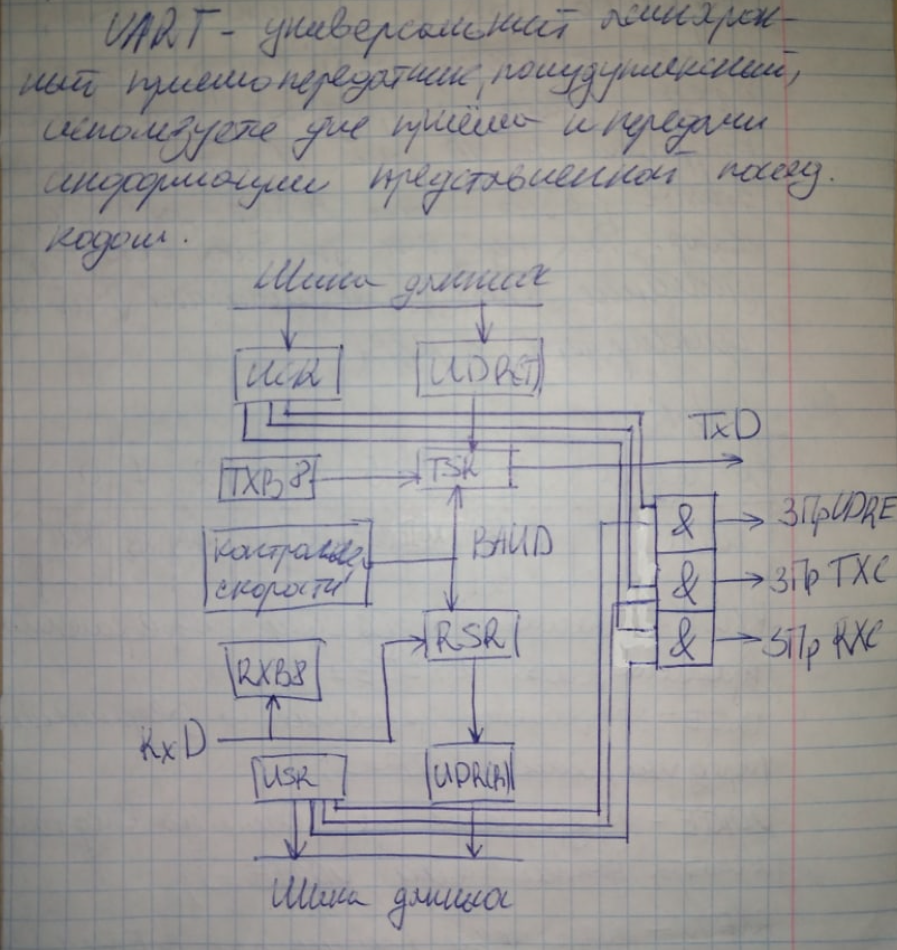 UART - универсальный асинхрон-
ный приемопередатчик, полудуплексный,
использует для приёма и передачи
информации представленной послед.
кодом.
Шина данных
UCR UDR(T)
TxD
TXB8 TSR
& ЗПр UDRE
Контроллер BAUD
скорости
& ЗПр TXC
RSR & ЗПр RXC
RXB8
RxD
USR UDR(R)
Шина данных